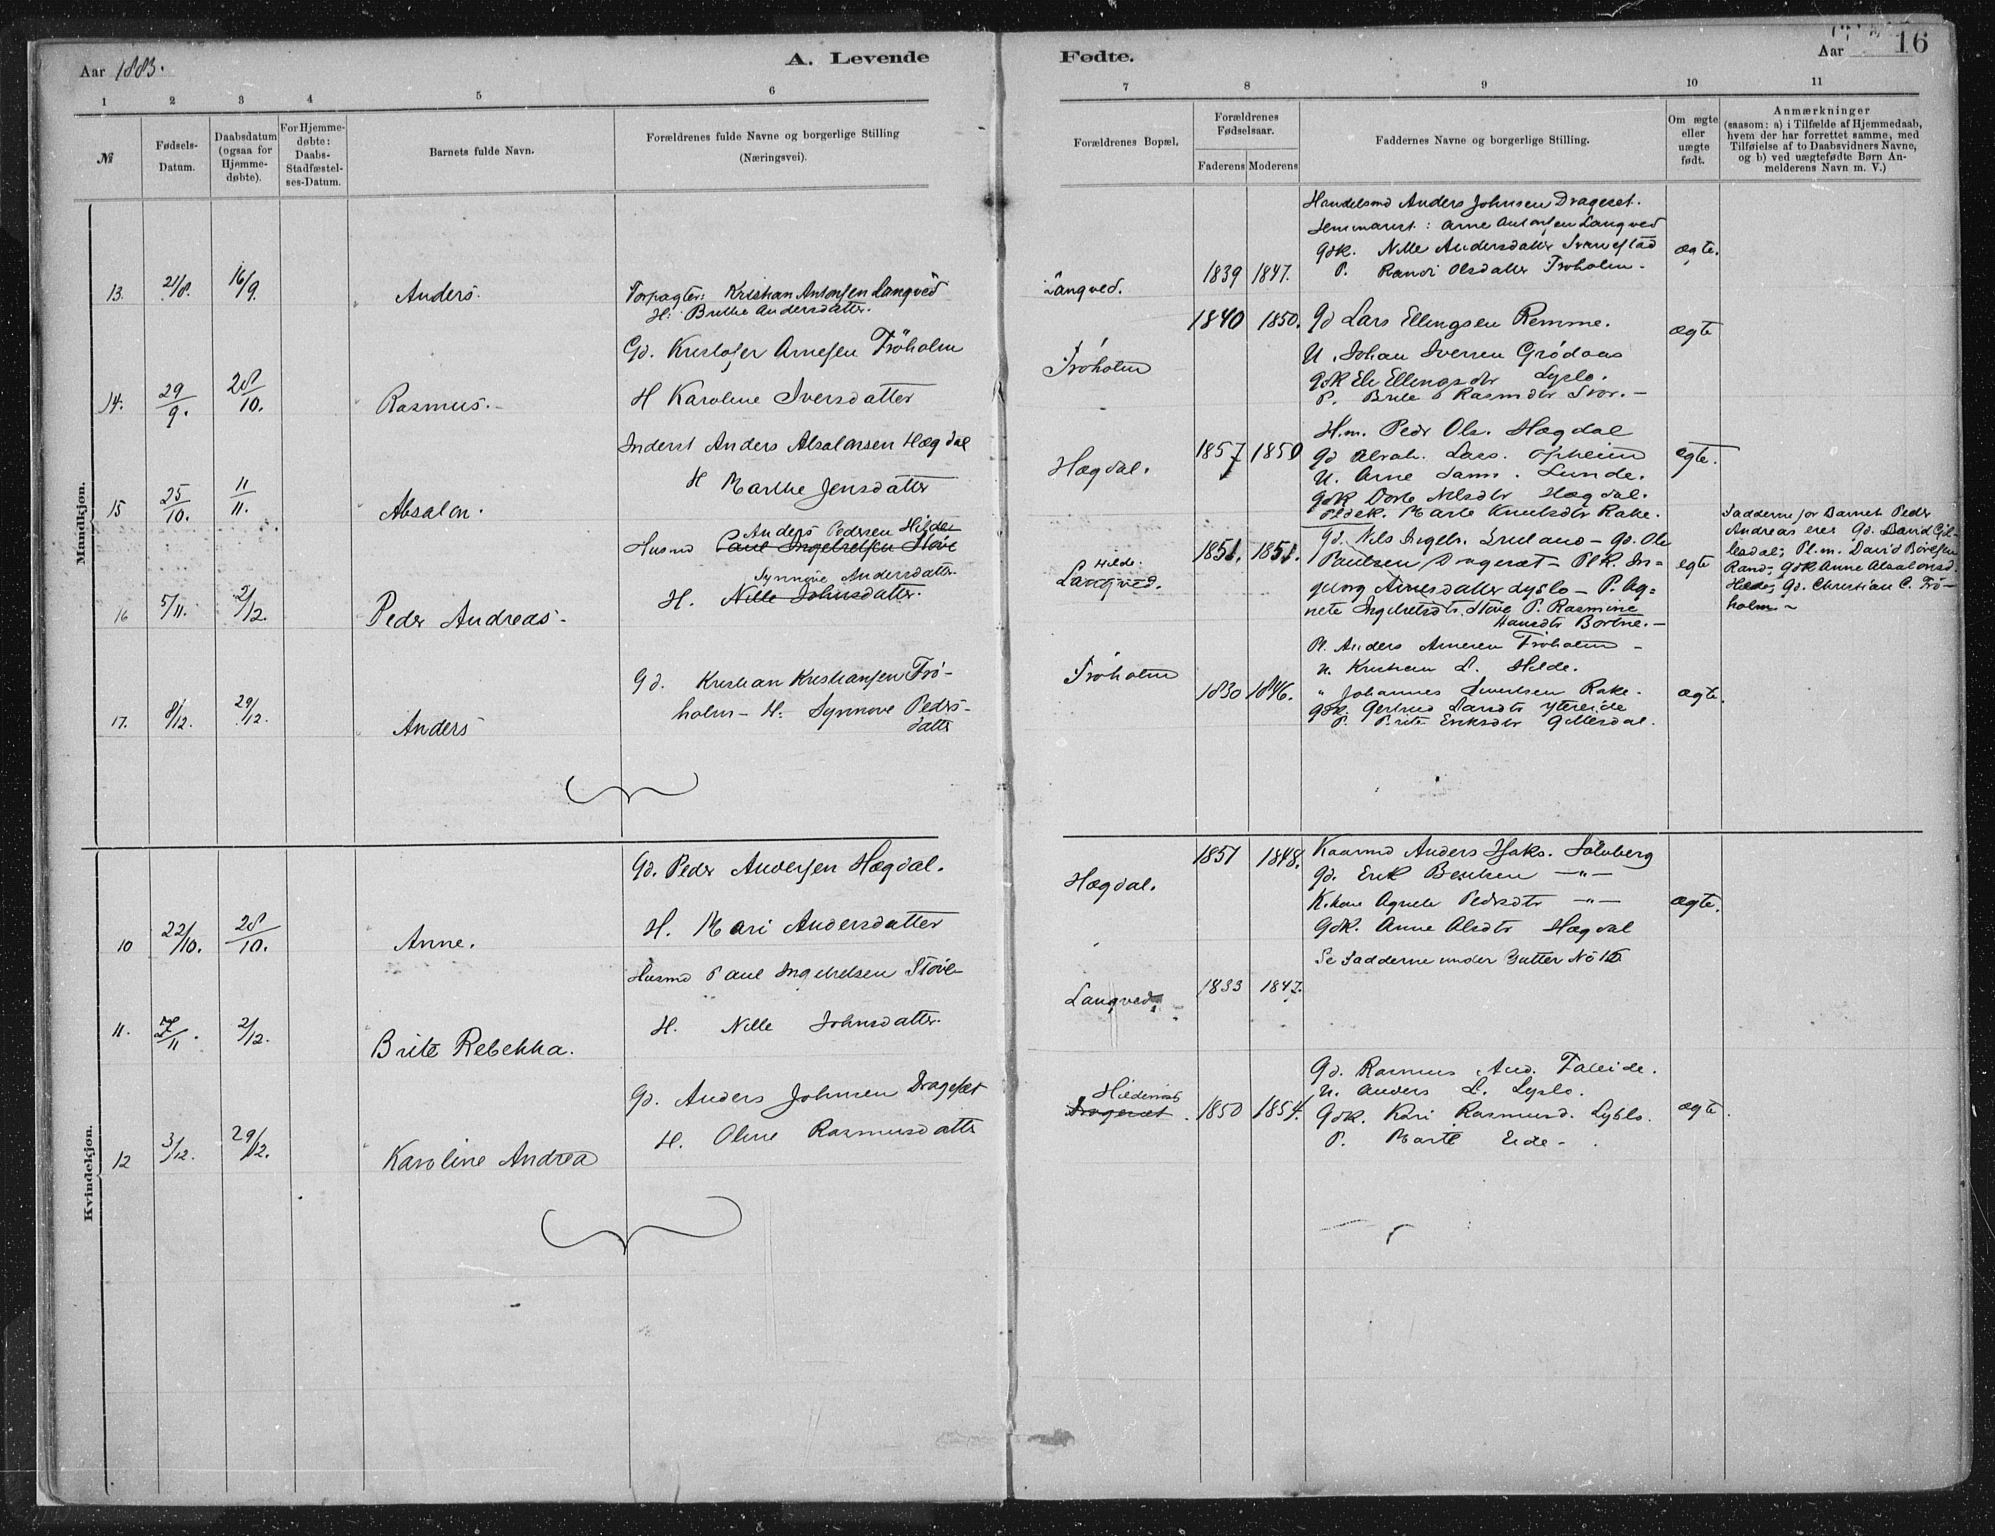 Aar 1883.
A. Levende
Fødte.
Aar
16
1 2 3 4 5 6 7 8 9 10 11
№
Fødsels-
Datum.
Daabsdatum
(ogsaa for
Hjemme-
døbte).
For Hjemme-
døbte:
Daabs-
Stadfæstel-
ses-Datum.
Barnets fulde Navn.
Forældrenes fulde Navne og borgerlige Stilling
(Næringsvei).
Forældrenes Bopæl.
Forældrenes
Fødselsaar.
Faderens
Moderens
Faddernes Navne og borgerlige Stilling.
Om ægte
eller
uægte
født.
Anmærkninger
(saasom: a) i Tilfælde af Hjemmedaab,
hvem der har forrettet samme, med
Tilføielse af to Daabsvidners Navne,
og b) ved uægtefødte Børn An-
melderens Navn m. V.)
Mandkjøn.
13. 21/8. 16/9. Anders.
Forpagter: Kristian Antonsen Langved
H: Brithe Andersdatter.
Langved. 1839 1847.
Handelsmd Anders Johnsen Drageset.
Seminarist: Arne Antonsen Langved
Gdk. Nille Andersdatter
P. Randi Olsdatter Frøholm.
ægte.
14. 29/9. 28/10. Rasmus.
Gd. Kristofer Arnesen Frøholm
H Karoline Iversdatter
Frøholm 1840 1850.
Gd Lars Ellingsen Remme.
U. Johan Iversen Grødaas
Gdk Eli Ellingsdtr Lyslo.
P. Brite Rasmdtr Stor.
ægte
15 25/10. 11/11. Absalon.
Inderst Anders Absalonsen Hægdal
H Marthe Jensdatter
Hægdal. 1857 1850
H.m. Pedr Ols. Hægdal
Gd Abrah. Lars. Opheim
U. Arne Sam. Lunde.
Gdk Dorte Nilsdtr Hægdal.
Marte Knutsdtr Rake.
egte.
16 5/11. 2/12. Peder Andreas.
Anders Pedersen Hilde
Husmd Paul Ingebretsen Støve
Synnøve Andersdatter
H. Nille Johnsdatter.
Hilde.
Langved. 1851. 1851.
Gd. Nils Ingebr. - Gd. Ole
Paulsen Dragesæt - Plk. In-
geborg Arnesdatter Lyslo - P. Ag-
nete Ingebretsdtr. Støve P. Rasmine
Hansdtr Bortne.
egte
Fadderne for Barnet Peder
Andreas erer Gd. David Gil-
lesdal; Pl.m. David Børesen
Rand, Gdk Anne Absalonsd.
Hilde, Gd. Christian C. Frø-
holm.
17. 8/12. 29/12. Anders
Gd. Kristian Kristiansen Frø-
holm - H: Synnøve Peders-
datter
Frøholm 1830 1846.
Pl. Anders Arnesen Frøholm
U. Kristian L. Hilde.
" Johannes Sivertsen Rake.
Gdk. Gertrud Larsdtr Ytreeide
P. Brite Eriksdtr Gillesdal.
ægte.
Kvindekjøn.
10 22/10. 28/10. Anne.
Gd. Peder Andersen Hægdal.
H. Mari Andersdatter
Hægdal. 1851 1848.
Kaarmd Anders Isaks. Sølvberg
Gd. Erik Bentsen -"-
K.kone Agnete Pedrsdtr -"-
Gdk. Anne Alsdtr Hægdal
ægte.
11. 27/11. 2/12. Brite Rebekka.
Husmd Paul Ingebretsen Støve
H. Nille Johnsdatter
Langved. 1833 1847.
Se Fadderne under Gutter No 16
12 3/12. 29/12. Karoline Andrea
Gd. Anders Johnsen Dragesæt
H. Oline Rasmusdatter
Hildenes
Dragesæt. 1850 1854.
Gd. Rasmus And. Faleide.
U. Anders L. Lyslo.
Gdk. Kari Rasmusd. Lyslo.
P. Marte Eide.
ægte.